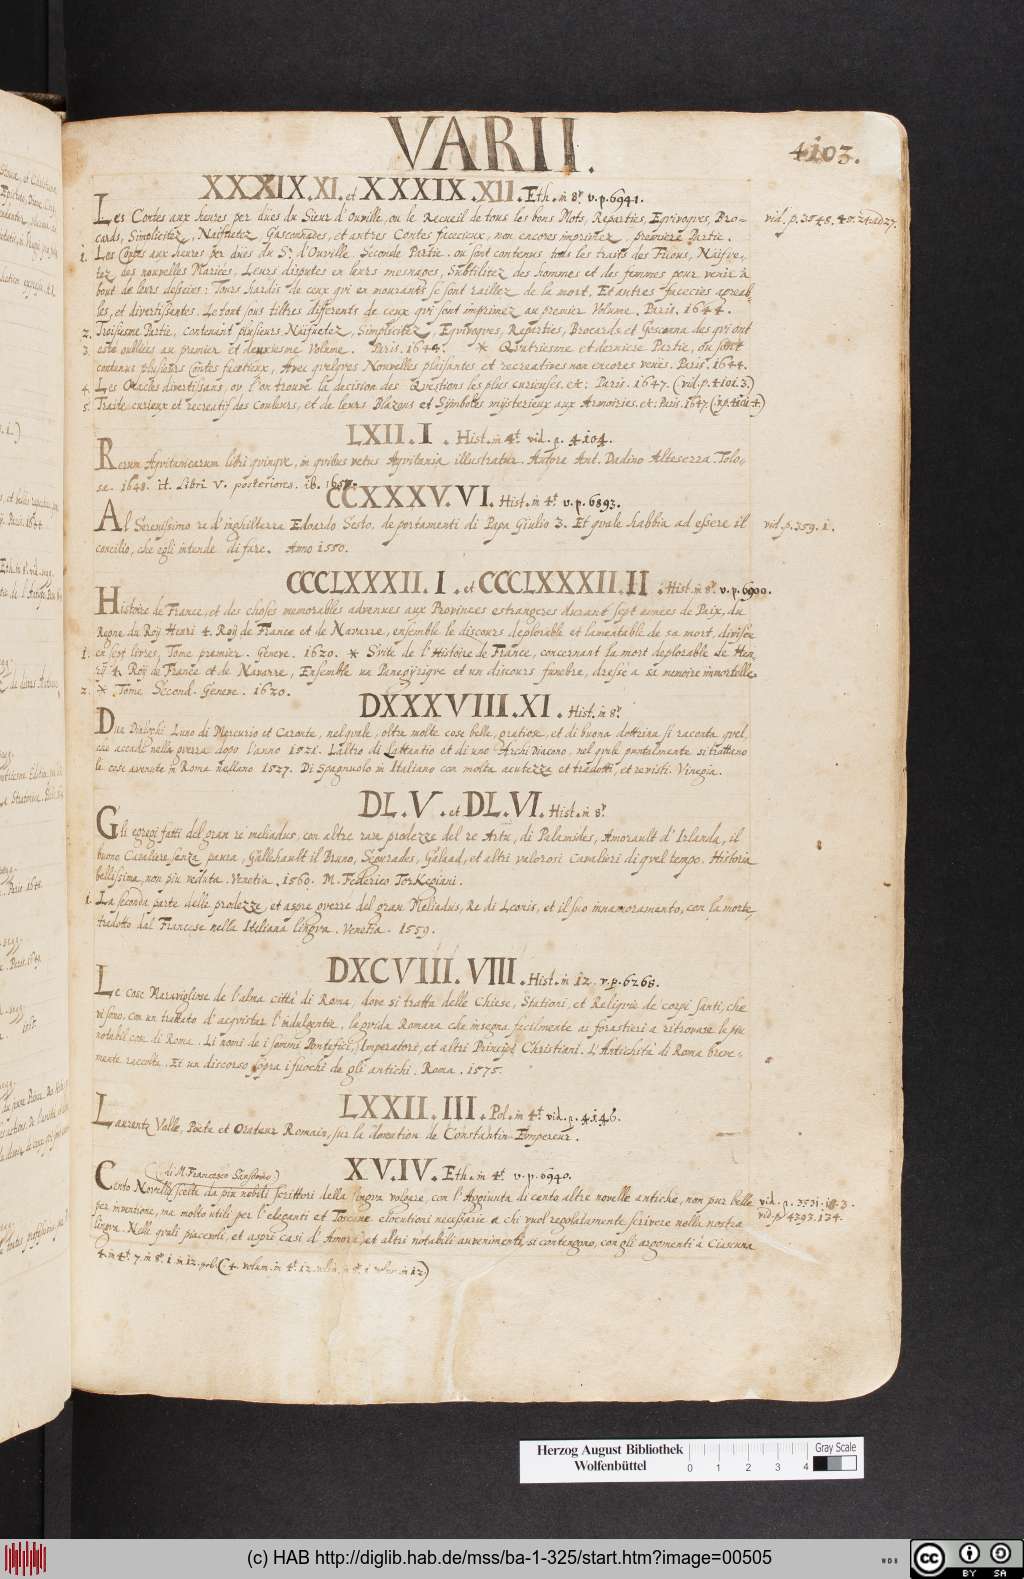 VARII.
4103.
XXXIX.XI. et XXXIX.XII. Eth. in 8º v.p. 6941.
Les Contes aux heures per dues du Sieur d'Ouville, ou le Recueil de tous les bons Mots, Reparties, Equivoques, Bro- vid. p. 3548.
cards, Simplicitez, Naifuetez Gasconnades, et autres Contes facecieux, non encores imprimez, premiere Partie.
1. Les Contes aux heures per dues du Sr. d'Ouville. Seconde Partie. ou sont contenus tous les traits des Filous, Naifue-
tez des nouvelles Mariées, Leurs disputes en leurs mesnages, Subtilitez des hommes et des femmes pour venir à
bout de leurs desseins: Tours hardis de ceux qui en mourants se sont raillez de la mort, Et autres facecies agreab-
les, et divertissantes. Le tout sous tiltres differents de ceux qui sont imprimez au premier Volume. Paris. 1644.
2. Troisiesme Partie, Contenant plusieurs Naifuetez, Simplicitez, Equivoques, Reparties, Brocards et Gasconnades qui ont
3. esté oubliées au premier et deuxiesme Volume. Paris. 1644. * Quatriesme et derniere Partie, ou sont
contenus plusieurs Contes facetieux, Avec quelques Nouvelles plaisantes et recreatives non encores venës. Paris. 1644.
4. Les Oracles divertissans, ou l'on trouve la decision des Questions les plus curieuses. etc: Paris. 1647. (vid. p. 4101. 3.)
5. Traité curieux et recreatif des Couleurs, et de leurs Blazons et Symboles mysterieux aux Armoiries. etc: Paris. 1647. (v.p. 4101. 4.)
LXII.I. Hist. in 4º vid. p. 4104.
Rerum Aquitanicarum libri quinque, in quibus vetus Aquitania illustratur. Autore Ant. Dadino Alteserra. Tolo-
sæ. 1648. it. Libri V. posteriores. ib. 1657.
CCXXXV.VI. Hist. in 4º v.p. 6893.
Al Serenissimo re d'inghilterra Edoardo Sesto. de portamenti di Papa Giulio 3. Et quale habbia ad essere il vid. p. 359. 1.
concilio, che egli intende di fare. Anno 1550.
CCCLXXXII.I. et CCCLXXXII.II. Hist. in 8º v.p. 6900.
Histoire de France, et des choses memorables advenues aux Provinces estrangeres durant sept années de Paix, du
Regne du Roy Henri 4. Roy de France et de Navarre, ensemble le discours deplorable et lamentable de sa mort, divisée
1. en sept livres, Tome premier. Geneve. 1620. * Suite de l'Histoire de France, concernant la mort deplorable de Hen
ry 4. Roy de France et de Navarre, Ensemble un Panegyrique et un discours funebre, dressé a sa memoire immortelle.
2. * Tome Second. Geneve. 1620.
DXXXVIII.XI. Hist. in 8º
Due Dialoghi Luno di Mercurio et Caronte, nel quale, oltre molte cose belle, gratiose, et di buona dottrina si raconta quel,
che accadè nella guerra dopo l'anno 1521. L'altro di Lattantio et di uno Archi Diacono, nel quale puntalmente si trattano
le cose avenute in Roma nell'anno 1527. Di Spagnuolo in Italiano con molta acutezza et tradotti, et revisti. Vinegia.
DL.V. et DL.VI. Hist. in 8º
Gli egregi fatti del gran re meliadus, con altre rare prodezze del re Artù, di Palamides, Amorault d'Irlanda, il
buono Cavaliere senza paura, Gallehault il Bruno, Segurades, Galaad, et altri valorosi Cavalieri di quel tempo. Historia
bellissima, non piu veduta. Venetia. 1560. M. Federico Torregiani.
1. La seconda parte delle prodezze, et aspre guerre del gran Meliadus, Re di Leonis, et il suo innamoramento, con la morte,
tradotto dal Francese nella Italiana lingua. Venetia. 1559.
DXCVIII.VIII. Hist. in 12. v.p. 6268.
Le cose Maravigliose de l'alma città di Roma, dove si tratta delle Chiese, Stationi, et Reliquie de corpi santi, che
vi sono, con un trattato d'acquistar l'indulgentie, la guida Romana che insegna facilmente ai forastieri a ritrovare le piu
notabil cose di Roma. Li nomi de i sommi Pontefici, Imperatori, et altri Principi Christiani. L'Antichità di Roma breve-
mente raccolta. Et un discorso sopra i fuochi de gli antichi. Roma. 1575.
LXXII.III. Pol. in 4º vid. p. 4146.
Laurentz Valle, Poete et Orateur Romain, sur la donation de Constantin Empereur.
XV.IV. Eth. in 4º v.p. 6940.
(di M. Francesco Sansovino)
Cento Novelle scelte da piu nobili scrittori della lingua volgare, con l'Aggiunta di cento altre novelle antiche, non pur belle vid. p. 3531.
per inventione, ma molto utili per l'eleganti et Toscane elocutioni necessarie a chi vuol regolatamente scrivere nella nostra vid. p. 4393. 134.
lingua. Nelle quali piacevoli, et aspri casi d'Amore, et altri notabili avvenimenti si contengono, con gli argomenti à Ciascuna
4. in 4º. 7. in 8º. 1. in 12.
Herzog August Bibliothek
Wolfenbüttel
0 1 2 3 4
Gray Scale
(c) HAB http://diglib.hab.de/mss/ba-1-325/start.htm?image=00505
WDB
cc BY SA